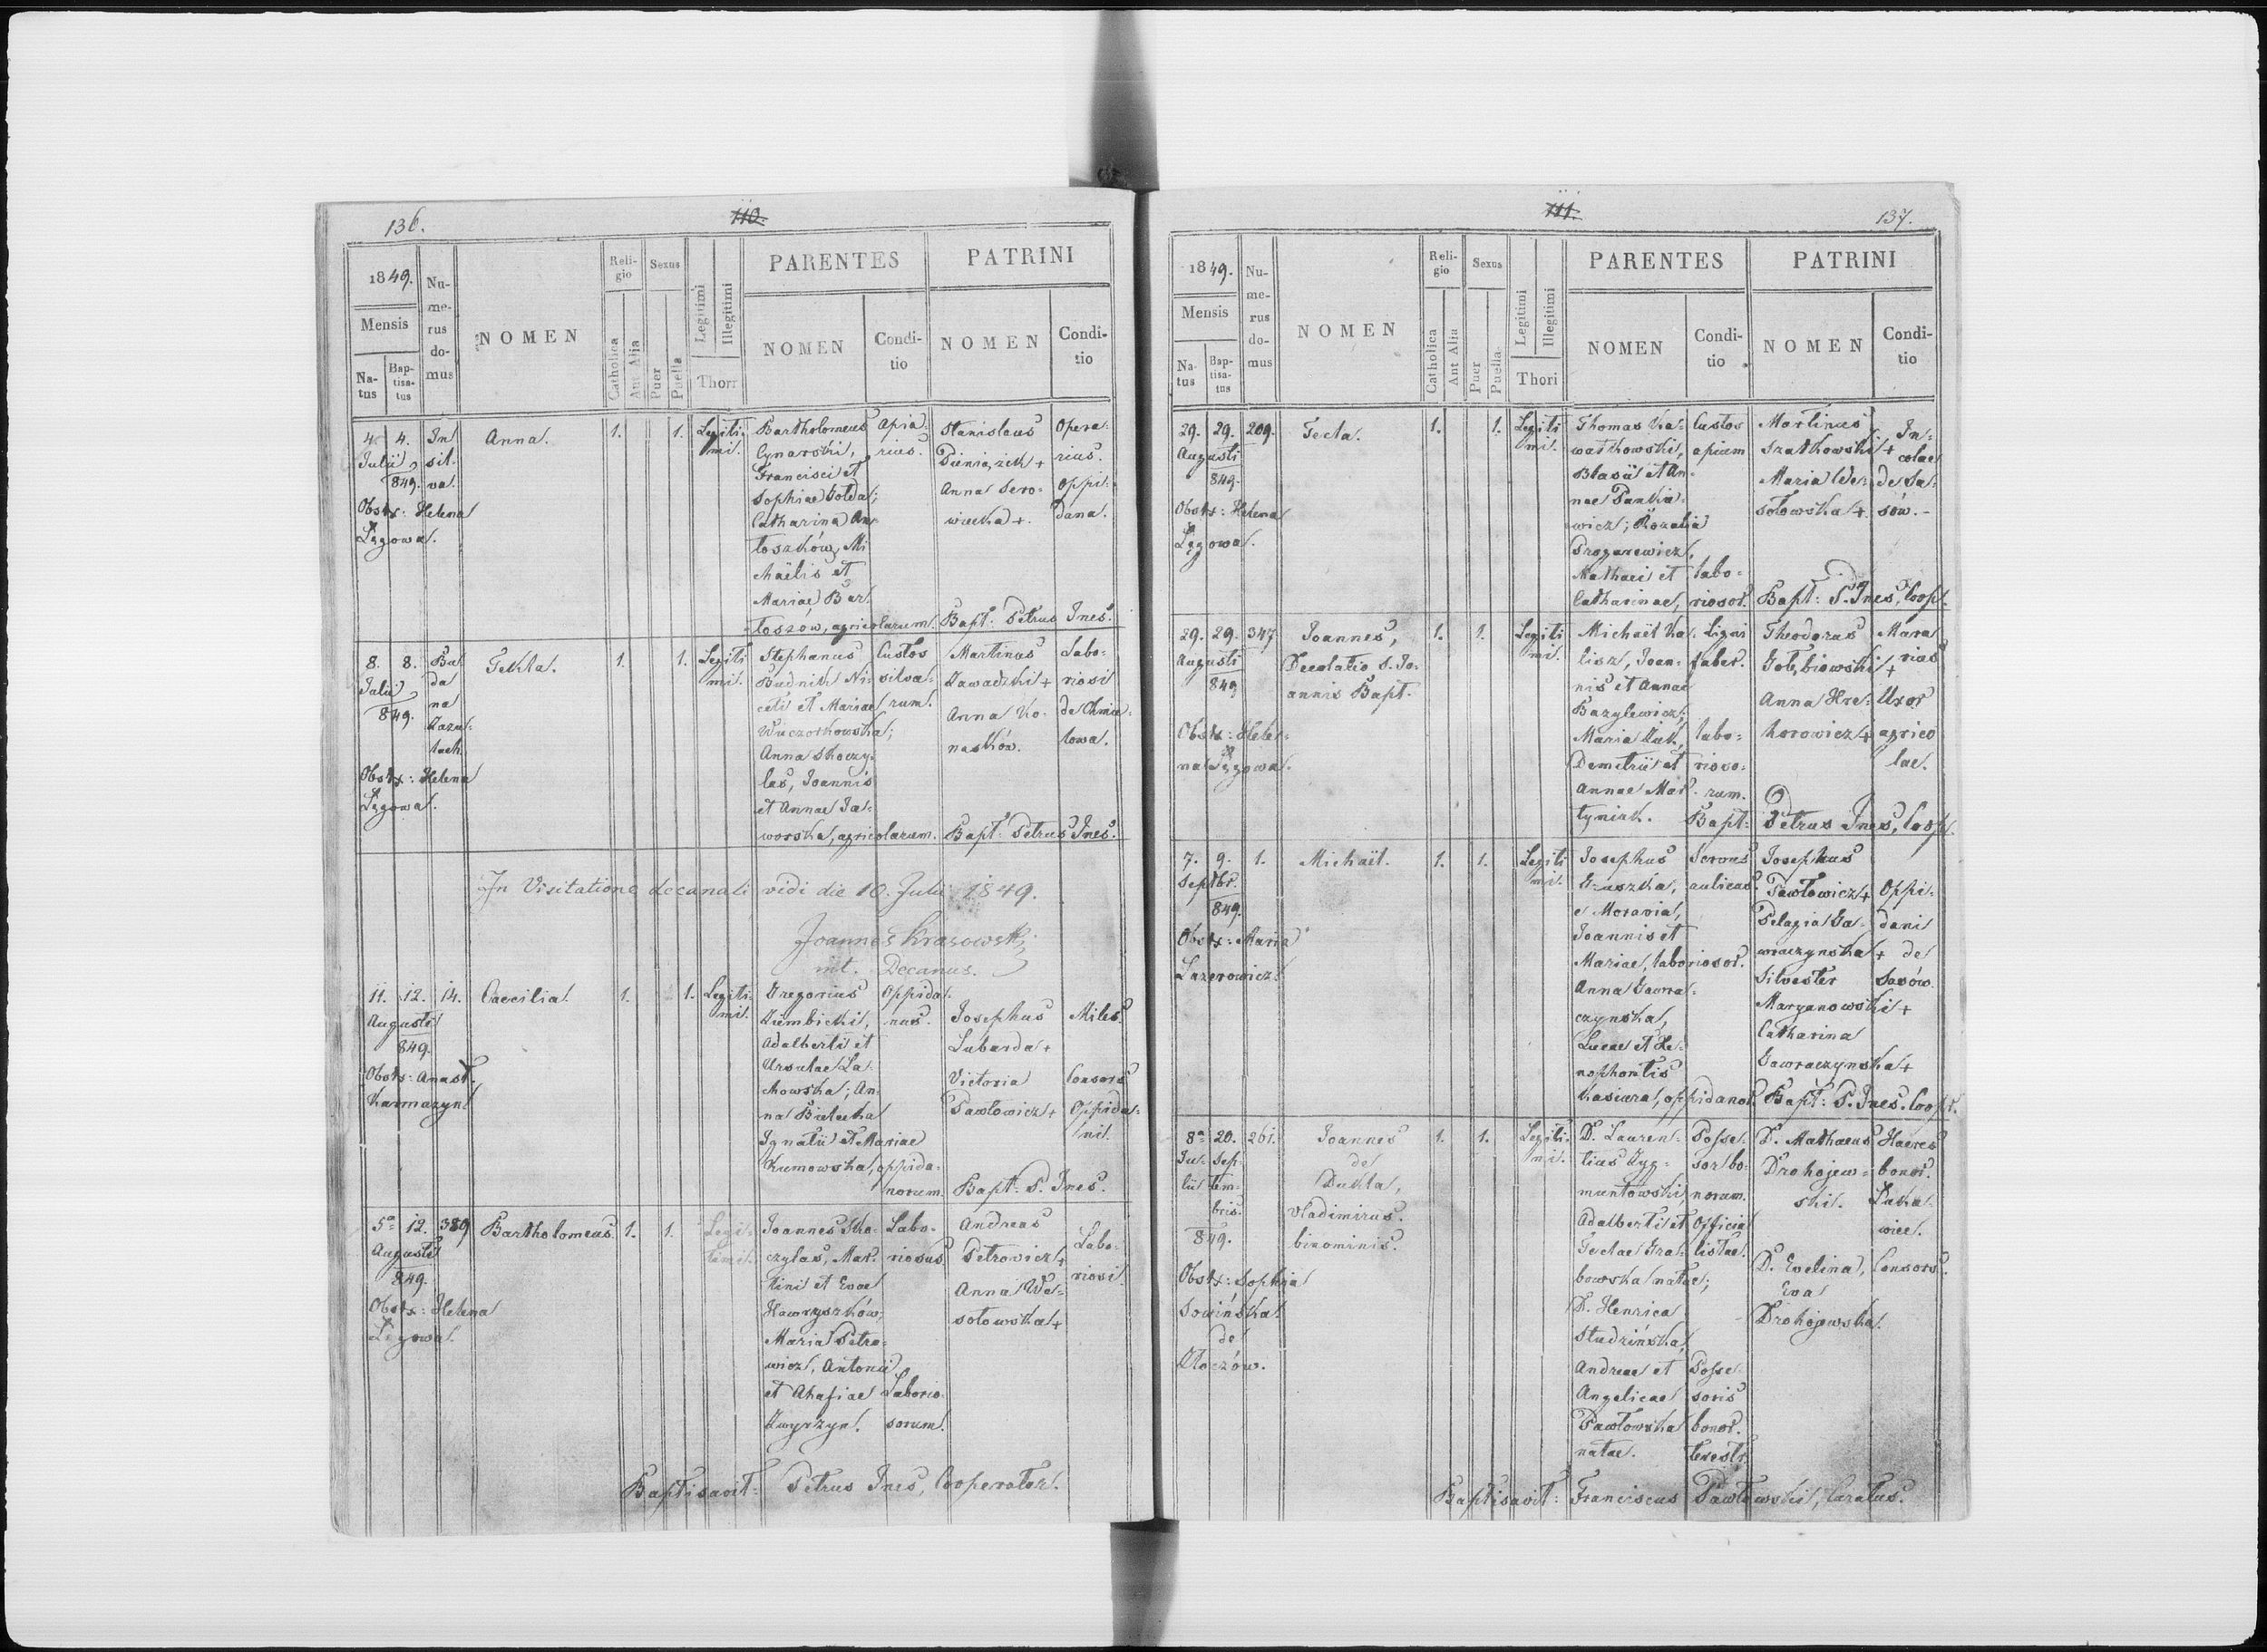 136.
110.
1849.
Mensis
Na-
tus
Bap-
tisa-
tus
Nu-
me-
rus
do-
mus
NOMEN
Reli-
gio
Catholica
Aut Alia
Sexus
Puer
Puella
Legitimi
Illegitimi
Thori
PARENTES
NOMEN
Condi-
tio
PATRINI
NOMEN
Condi-
tio
4. 4.
Julii
849.
Obstx: Helena
Lęgowa.
In
sil-
va.
Anna.
1.
1.
Legiti-
mi.
Bartholomeus
Cynarski,
Francisci et
Sophiae Gołda;
Catharina
toszków, Mi
chaëlis et
Mariae Bar
toszow, agricolarum.
Apia-
rius.
Stanislaus
Pieniążek +
Anna Sero-
wiecka +.
Opera-
rius.
Oppi-
dana.
Bapt: Petrus Ines.
8. 8.
Julii
849.
Obstx: Helena
Lęgowa.
Bu
da
na
Zazu-
lach.
Tekla.
1.
1.
Legiti
mi.
Stephanus
Budnik Ni-
ceti et Mariae
Wieczorkowska;
Anna Skoczy-
las, Joannis
et Annae Ja-
worska, agricolarum.
Custos
silva-
rum.
Martinus
Zawadzki +
Anna Ko-
nasków.
Labo-
riosi
de Chmie-
lowa.
Bapt: Petrus Ines.
In Visitatione decanali vidi die 10. Julii 1849.
Joannes Krasowski
mt. Decanus.
11. 12.
Augusti
849.
Obstx: Anast.
Karmazyn
14.
Caecilia.
1.
1.
Legiti-
mi.
Gregorius
Ziembicki,
Adalberti et
Ursulae La-
chowska; An-
na Bielecka
Ignatii et Mariae
Kumowska, oppida-
norum.
Oppida-
nus.
Josephus
Labarda +
Victoria
Pawłowicz +
Miles.
Consors
Oppida-
ni.
Bapt: P. Ines.
5ª 12.
Augusti
849.
Obstx: Helena
Lęgowa.
389
Bartholomeus.
1.
1.
Legi-
timi.
Joannes Sko-
czylas, Mar-
tini et Evae
Hawryszków;
Maria Petro-
wicz, Antonii
et Ahafiae
Zwyrzyn.
Labo-
riosus
Laborio-
sorum.
Andreas
Petrowicz +
Anna We-
sołowska +
Labo-
riosi.
Baptisavit: Petrus Ines, Cooperator.
111.
137.
1849.
Mensis
Na-
tus
Bap-
tisa-
tus
Nu-
me-
rus
do-
mus
NOMEN
Reli-
gio
Catholica
Aut Alia
Sexus
Puer
Puella
Legitimi
Illegitimi
Thori
PARENTES
NOMEN
Condi-
tio
PATRINI
NOMEN
Condi-
tio
29. 29.
Augusti
849.
Obstx: Helena
Lęgowa.
209.
Tecla.
1.
1.
Legiti
mi.
Thomas Ka-
wałkowski,
Blasii et An-
nae Pankie-
wicz; Rozalia
Prozarewicz,
Mathaei et
Catharinae,
Custos
apium
labo-
riosor.
Martinus
Szatkowski +
Maria We-
sołowska +.
In-
colae
de Sa-
sów.-
Bapt: P. Ines, Coop.
29. 29.
Augusti
849
Obstx: Hele-
na Lęgowa.
347
Joannes,
Decolatio S. Jo-
annis Bapt.
1.
1.
Legiti
mi.
Michaël Ka-
lisz, Joan-
nis et Annae
Bazylewicz;
Maria Żuk,
Demetrii et
Annae Mar-
tyniak.
Ligni
faber.
labo-
rioso-
rum.
Theodorus
Gołębiowski +
Anna Hre-
horowicz +
Mura
rius
Uxor
agrico
lae.
Bapt: Petrus Ines, Coop.
7. 9.
Septbr.
849.
Obstx: Maria
Lazerowicz.
1.
Michaël.
1.
1.
Legiti
mi.
Josephus
Gruszka,
e Moravia,
Joannis et
Mariae, laboriosor.
Anna Gawra-
czynska,
Lucae et Xe-
nophontis
Kasiura, oppidanor.
Servus
aulicus.
Josephus
Pawłowicz +
Pelagia Ga-
wraczynska +
Silvester
Maryanowski +
Catharina
Gawraczynska +
Oppi-
dani
de
Sasów.
Bapt: P. Ines. Coop.
8ª 20.
Ju- Sep-
lii tem-
bris.
849.
Obstx: Sophia
Sowińska
de
Złoczów.
261.
Joannes
de
Dukla,
Vladimirus.
binominis.
1.
1.
Legiti-
mi.
D. Lauren-
tius Zyg-
muntowski,
Adalberti et
Teclae Gra-
bowska natae;
D. Henrica
Studzińska,
Andreae et
Angelicae
Pawłowska
natae.
Posse-
sor bo-
norum.
Officia
listae.
Posse-
soris
bonor.
terestr.
D. Mathaeus
Drohojew-
ski.
D. Evelina,
Eva
Drohojewska.
Haeres
bonor.
Luka-
wiec.
Consors.
Baptisavit: Franciscus Pawłowski, Curatus.